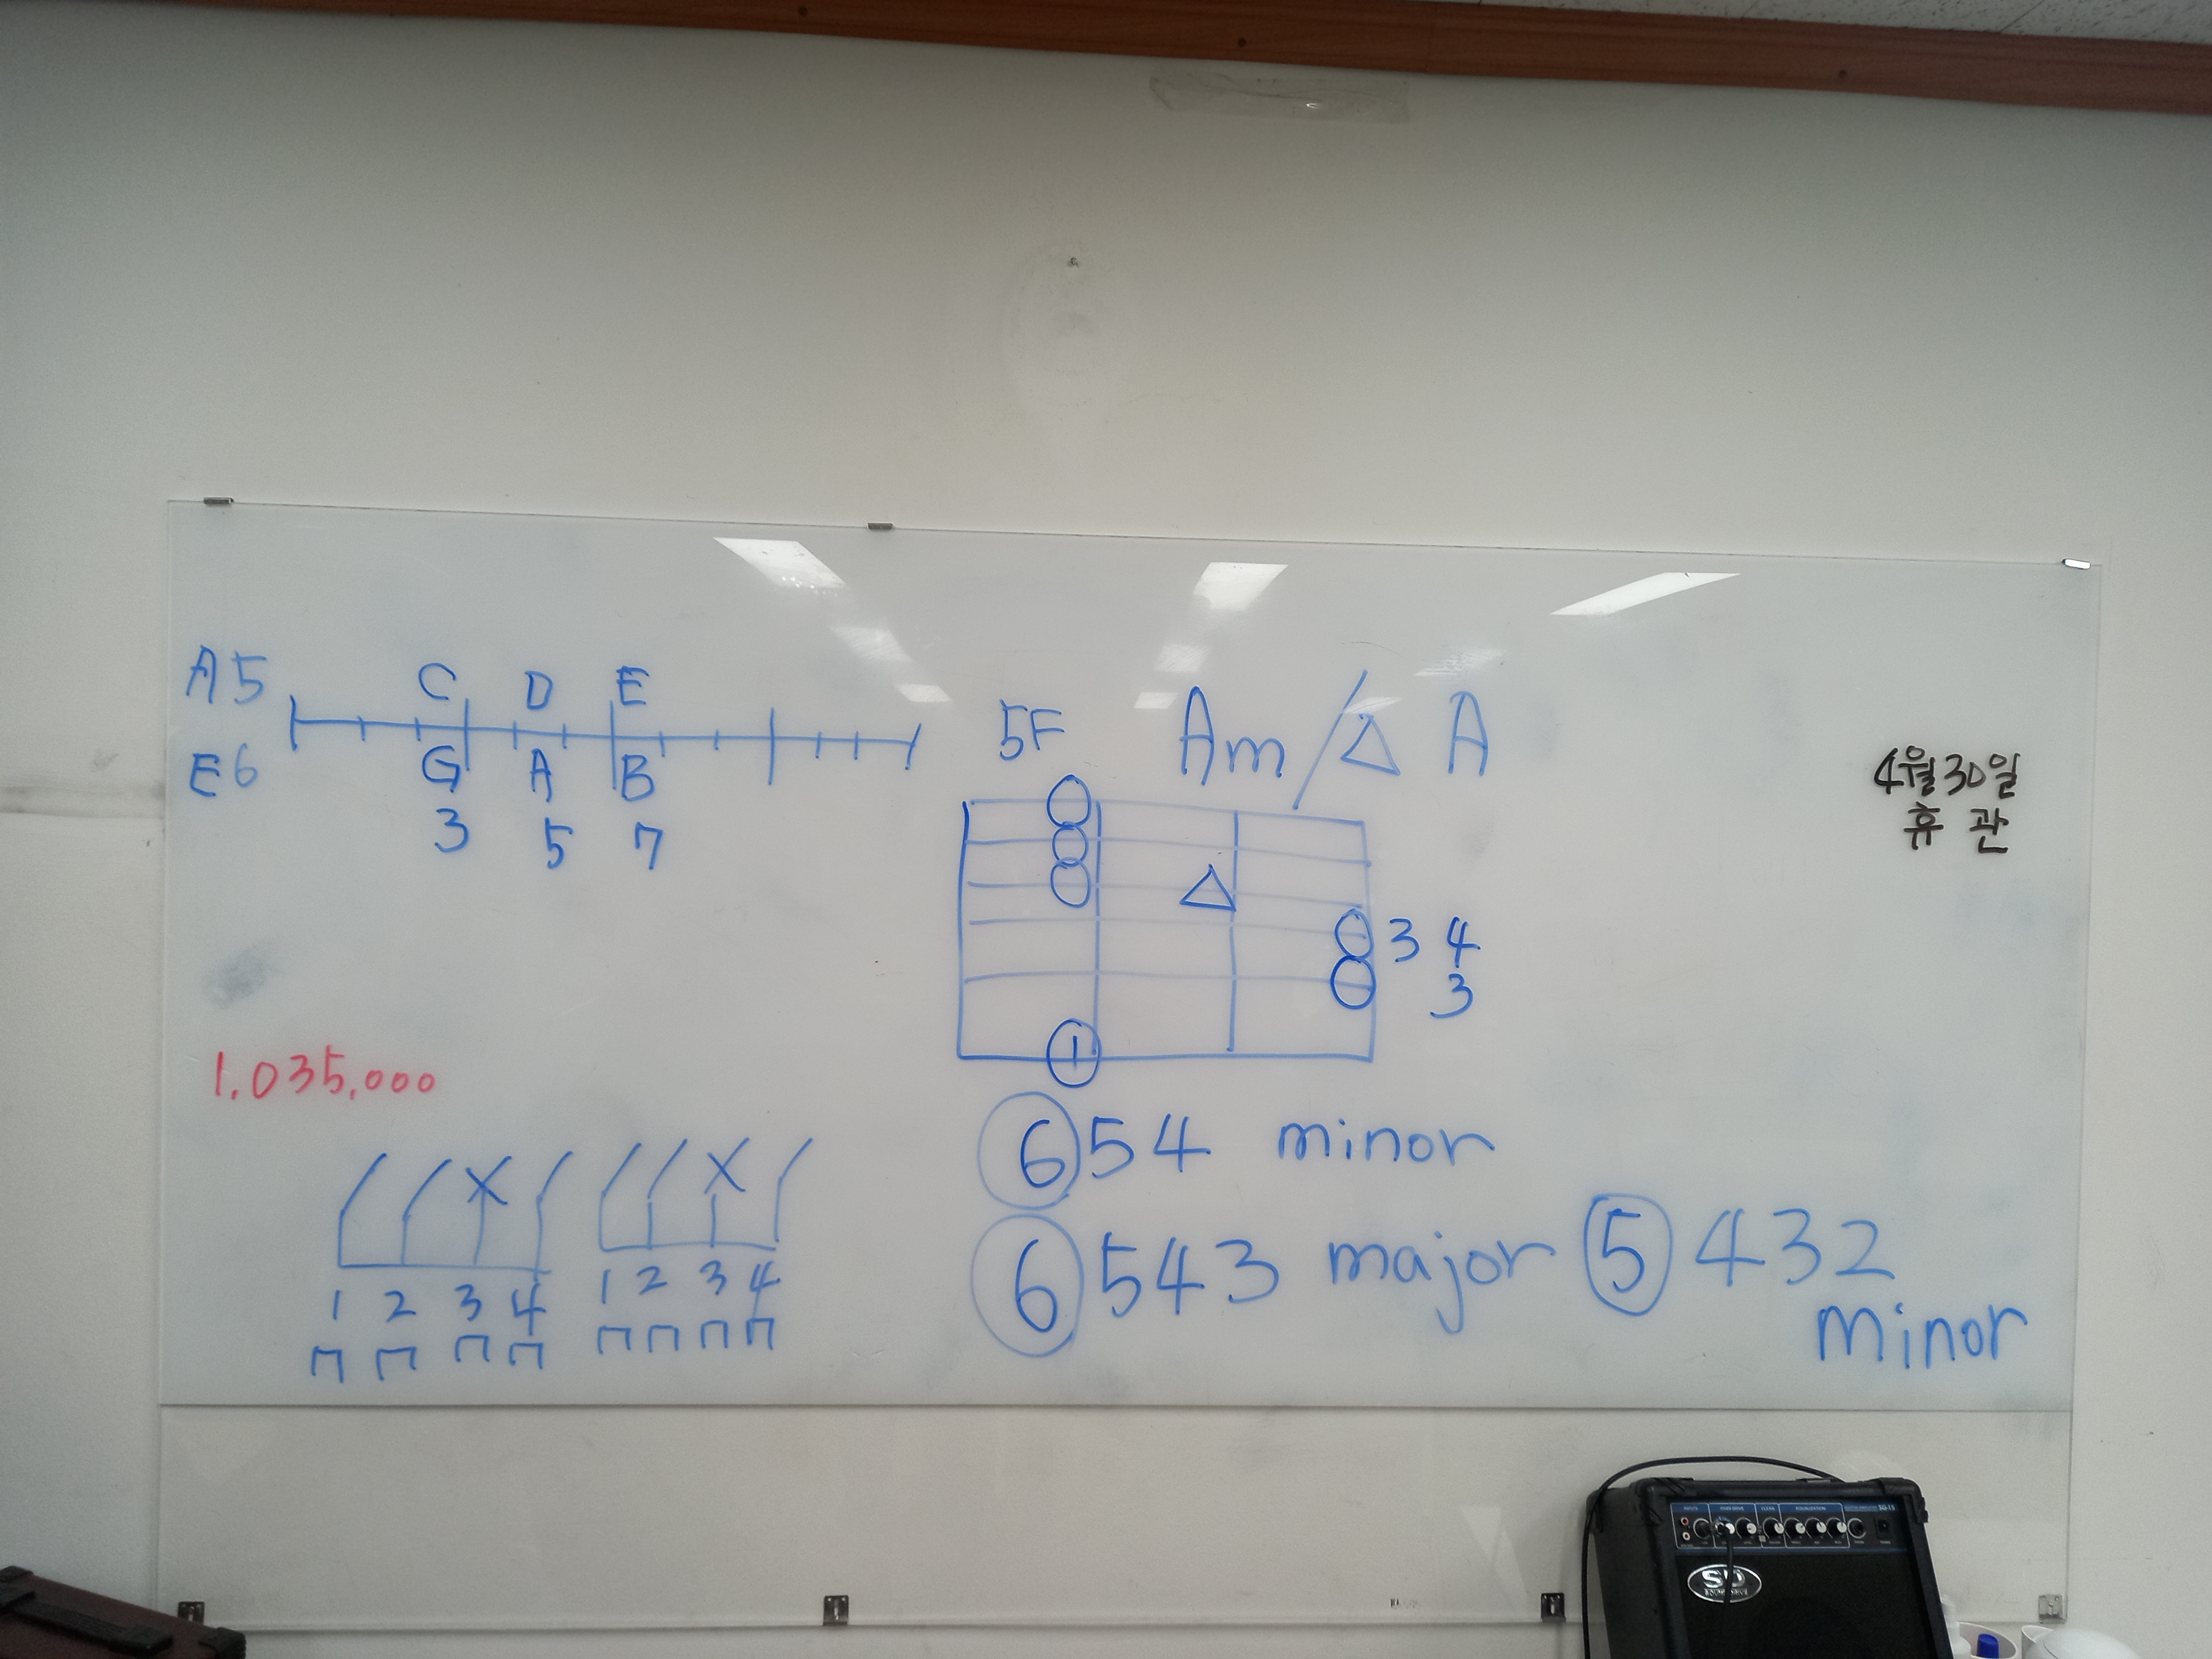 A5
C D E
E6
G A B
3 5 7
5F Am / △ A
1
3 4
3
4월30일
휴관
1,035,000
1 2 3 4 1 2 3 4
⑥54 minor
⑥543 major ⑤432
minor
SD